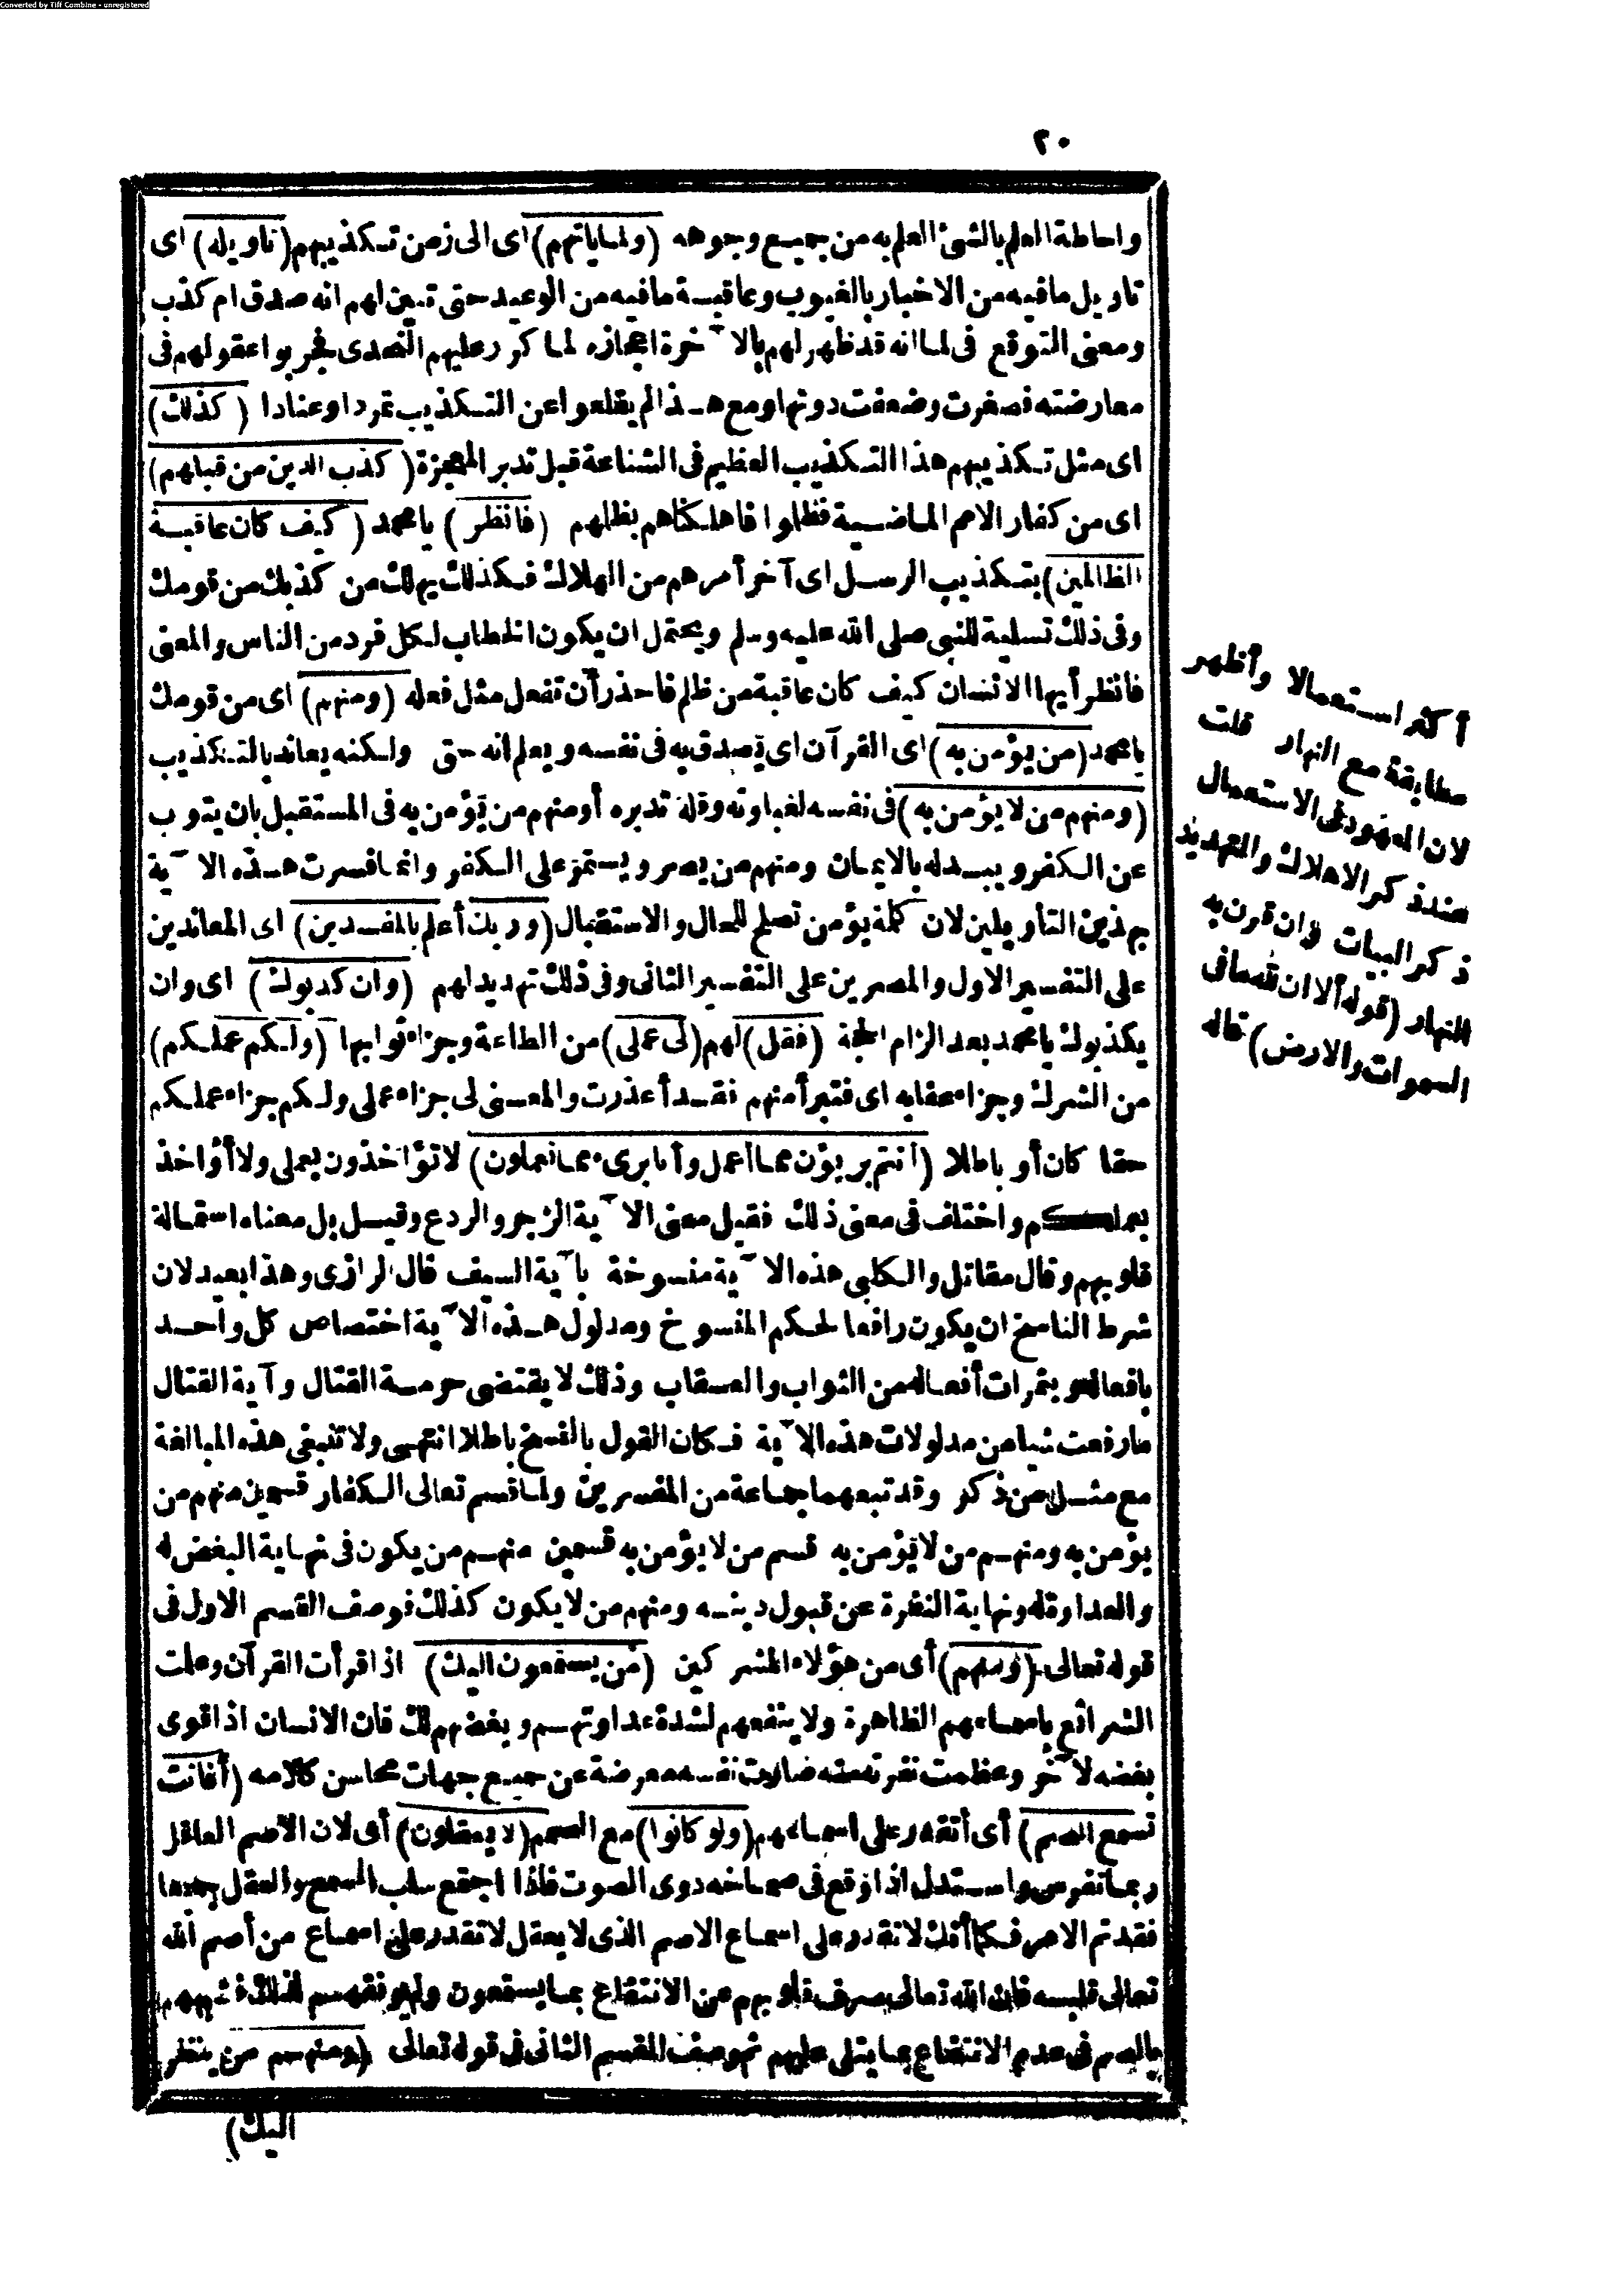 Converted by Tiff Combine - unregistered
٢٠
واحاطة العلم بالشئ العلم به من جميع وجوهه (ولما ياتهم) اى الى زمن تكذيبهم (تاويله) اى
تاويل ما فيه من الاخبار بالغيوب وعاقبة ما فيه من الوعيد حتى تبين لهم انه صدق ام كذب
ومعنى التوقع فى لما انه قد ظهر لهم بالآخرة اعجازه لما كرر عليهم التحدى فجربوا عقولهم فى
معارضته فصغرت وضعفت دونها ومع هذا لم يقلعوا عن التكذيب تمردا وعنادا (كذلك)
اى مثل تكذيبهم هذا التكذيب العظيم فى الشناعة قبل تدبر المعجزة (كذب الذين من قبلهم)
اى من كفار الامم الماضية فظلموا فاهلكناهم بظلمهم (فانظر) يا محمد (كيف كان عاقبة
الظالمين) بتكذيب الرسل اى آخر أمرهم من الهلاك فكذلك يهلك من كذبك من قومك
وفى ذلك تسلية للنبى صلى الله عليه وسلم ويحتمل ان يكون الخطاب لكل فرد من الناس والمعنى
فانظر أيها الانسان كيف كان عاقبة من ظلم فاحذر أن تفعل مثل فعله (ومنهم) اى من قومك
يا محمد (من يؤمن به) اى القرآن اى يصدق به فى نفسه ويعلم انه حق ولكنه يعاند بالتكذيب
(ومنهم من لا يؤمن به) فى نفسه لغباوته وقلة تدبره أو منهم من يؤمن به فى المستقبل بان يتوب
عن الكفر ويبدله بالايمان ومنهم من يصر ويستمر على الكفر وانما فسرت هذه الآية
بهذين التأويلين لان كلمة يؤمن تصلح للحال والاستقبال (وربك أعلم بالمفسدين) اى المعاندين
على التفسير الاول والمصرين على التفسير الثانى وفى ذلك تهديد لهم (وان كذبوك) اى وان
يكذبوك يا محمد بعد الزام الحجة (فقل) لهم (لى عملى) من الطاعة وجزاء ثوابها (ولكم عملكم)
من الشرك وجزاء عقابه اى فتبرأ منهم فقد أعذرت والمعنى لى جزاء عملى ولكم جزاء عملكم
حقا كان أو باطلا (أنتم بريؤن مما أعمل وأنا برىء مما تعملون) لا تؤاخذون بعملى ولا أؤاخذ
بعملكم واختلف فى معنى ذلك فقيل معنى الآية الزجر والردع وقيل بل معناه استمالة
قلوبهم وقال مقاتل والكلبى هذه الآية منسوخة بآية السيف قال الرازى وهذا بعيد لان
شرط الناسخ ان يكون رافعا لحكم المنسوخ ومدلول هذه الآية اختصاص كل واحد
بافعاله وبثمرات أفعاله من الثواب والعقاب وذلك لا يقتضى حرمة القتال وآية القتال
ما رفعت شيا من مدلولات هذه الآية فكان القول بالنسخ باطلا انتهى ولا تنبغى هذه المبالغة
مع مثل من ذكر وقد تبعهما جماعة من المفسرين ولما قسم تعالى الكفار قسمين منهم من
يؤمن به ومنهم من لا يؤمن به قسم من لا يؤمن به قسمين منهم من يكون فى نهاية البغض له
والعداوة له ونهاية النفرة عن قبول دينه ومنهم من لا يكون كذلك فوصف القسم الاول فى
قوله تعالى (ومنهم) أى من هؤلاء المشركين (من يستمعون اليك) اذا قرأت القرآن وعلمت
الشرائع باسماعهم الظاهرة ولا ينفعهم لشدة عداوتهم وبغضهم لك فان الانسان اذا قوى
بغضه لآخر وعظمت نفرته عنه صارت نفسه معرضة عن جميع جهات محاسن كلامه (أفانت
تسمع الصم) أى أتقدر على اسماعهم (ولو كانوا) مع الصمم (لا يعقلون) أى لان الاصم العاقل
ربما تفرس واستدل اذا وقع فى صماخه دوى الصوت فاذا اجتمع سلب السمع والعقل جميعا
فقد تم الامر فكما أنك لا تقدر على اسماع الاصم الذى لا يعقل لا تقدر على اسماع من أصم الله
تعالى قلبه فان الله تعالى صرف قلوبهم عن الانتفاع بما يستمعون ولم يوفقهم لذلك فشبههم
بالصم فى عدم الانتفاع بما يتلى عليهم ثم وصف القسم الثانى فى قوله تعالى (ومنهم من ينظر
اليك)
أكثر استعمالا وأظهر
مطابقة مع النهار قلت
لان المعهود فى الاستعمال
عند ذكر الاهلاك والتهديد
ذكر البيات وان قرن به
النهار (قوله ألا ان لله ما فى
السموات والارض) قاله